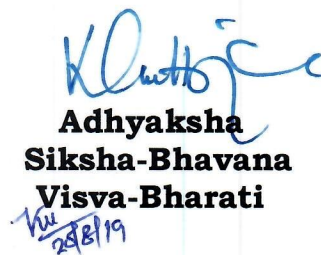 Adhyaksha
Siksha-Bhavana
Visva-Bharati